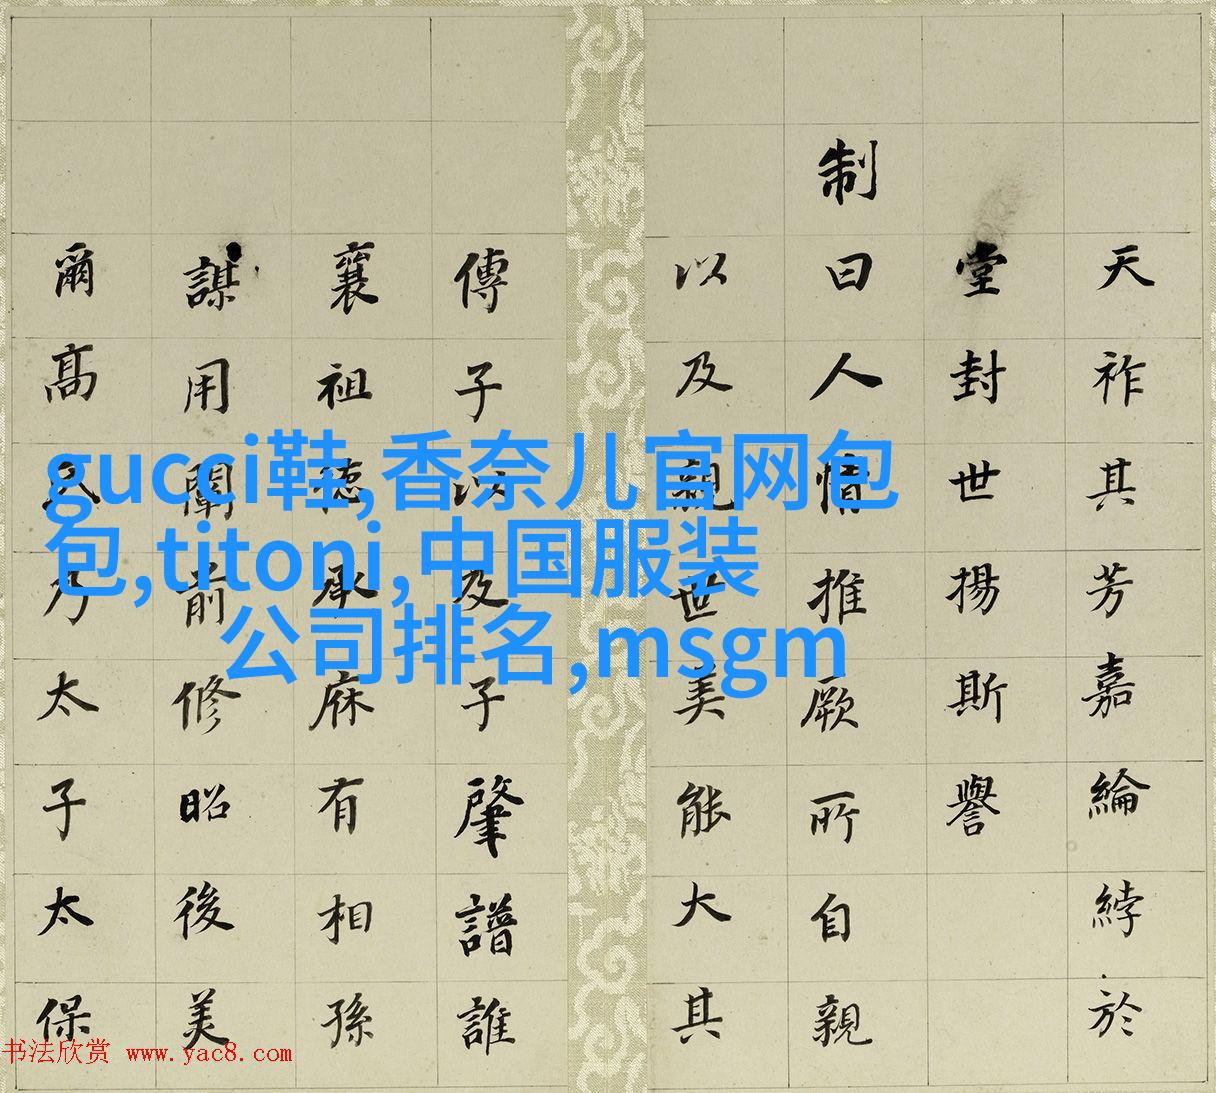 天祚其芳嘉綸綍於
堂封世揚斯譽
制曰人情推厥所自親
以及親世美能大其
傳子以及子肇譜誰
襄祖德承庥有相孫
謀用闡前修昭後美
爾高乃太子太保
gucci鞋,香奈儿官网包
包,titoni,中国服装
公司排名,msgm
书法欣赏 www.yac8.com